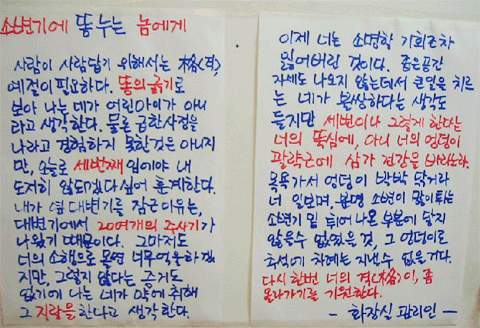 소변기에 똥누는 놈에게
사람이 사람답기 위해서는 格(격),
예절이 필요하다. 똥의 굵기로
보아 나는 네가 어린아이가 아니
라고 생각한다. 물론 급한사정을
나라고 경험하지 못한것은 아니지
만, 오늘로 세번째 임에야 내
도저히 않되겠다 싶어 훈계한다.
내가 옆 대변기를 잠근 이유는,
대변기에서 20여개의 주사기가
나왔기 때문이다. 그마저도
너의 소행으로 몰면 너무 억울하겠
지만, 그렇지 않다는 증거도
없기에 나는 네가 약에 취해
그 지랄을 한다고 생각한다.
이제 너는 소명할 기회조차
잃어버린 것이다. 좁은공간
자세도 나오지 않는데서 큰일을 치르
는 네가 불쌍하다는 생각도
들지만 세번이나 그렇게 한다는
너의 뚝심에, 아니 너의 엉덩이
괄약근에 삼가 건강을 바라노라.
목욕가서 엉덩이 박박 닦거라
너 일보며, 분명 소변이 많이튀는
소변기 밑 튀어나온 부분에 닿지
않을수 없었을 것, 그 엉덩이로
추석에 차례는 지낼수 없을거다.
다시 한번 너의 격(格)이, 좀
올라가기를 기원한다.
- 화장실 관리인 -